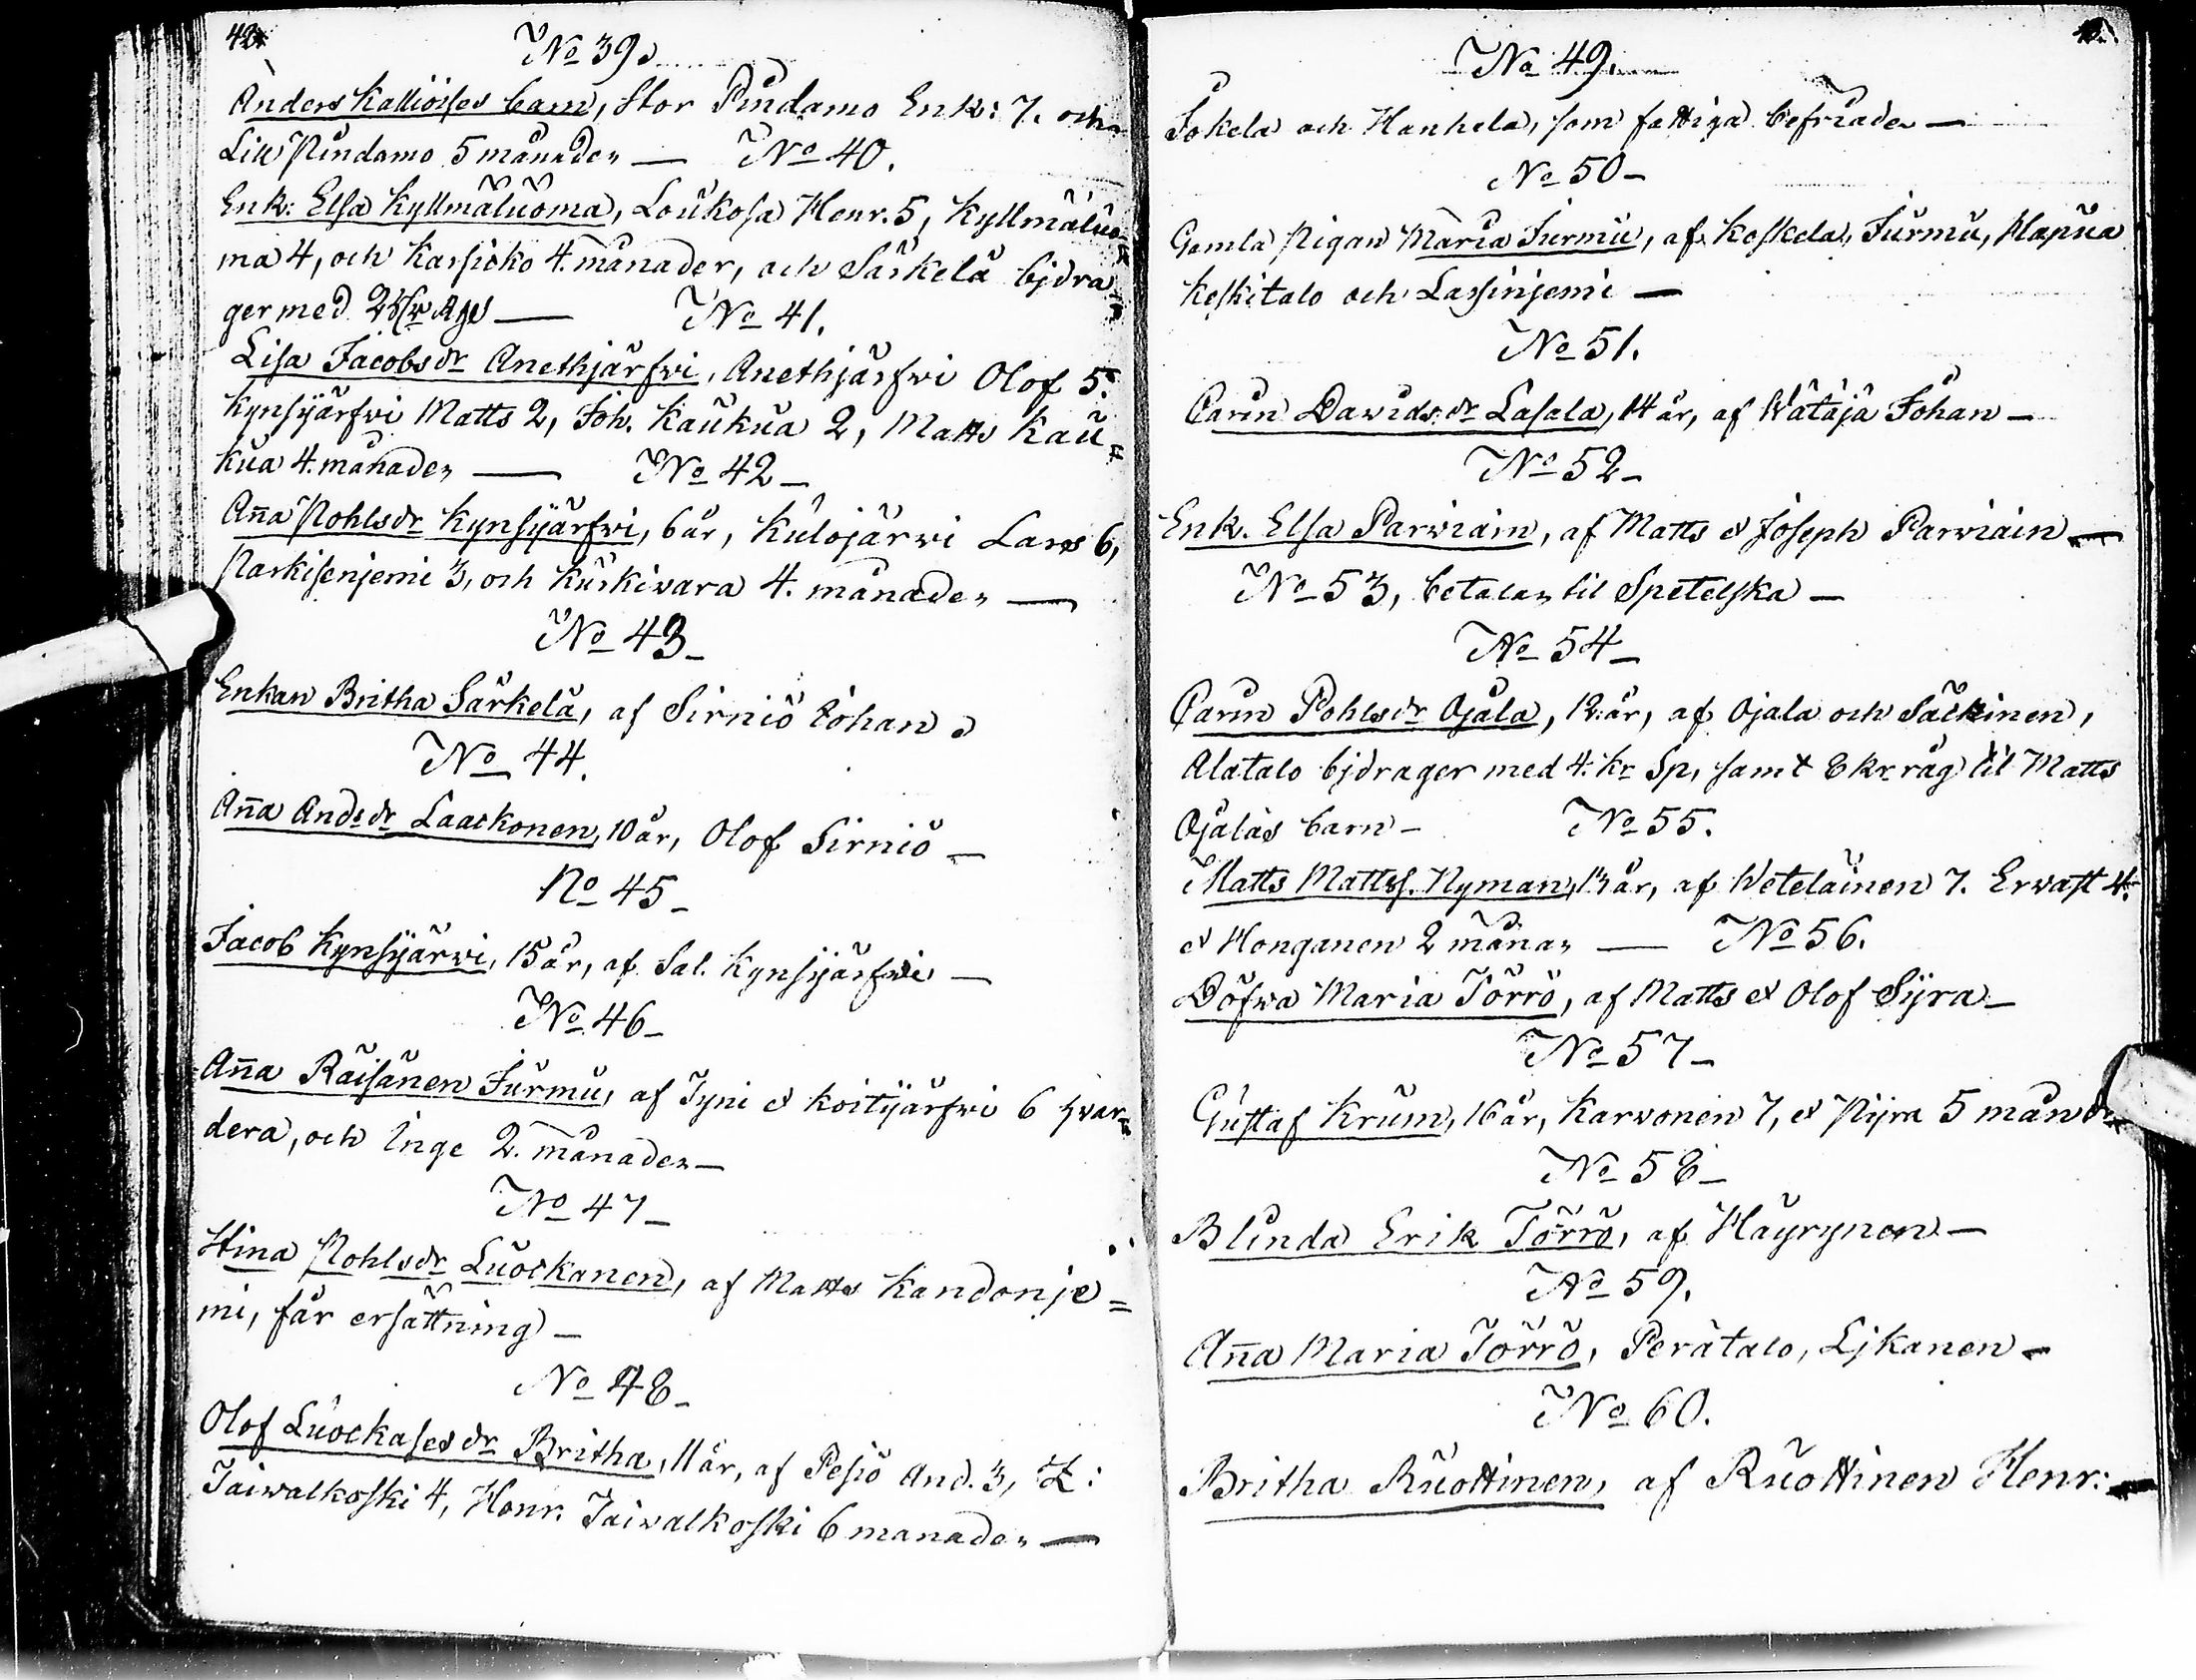 42.
No 39.
Anders Kalliöises barn, Stor Pindamo Enk: 7. och
Lill Pindamo 5 månader — No 40.
Enk: Elsa Kyllmäluoma, Loukosa Henr. 5, Kyllmäluo-
ma 4, och Karsicko 4. månader, och Särkelä bjdra-
ger med No 41.
Lisa Jacobsdr Anethjärfwi, Anethjärfwi Olof 5.
Kynsijärfwi Matts 2, Joh. Kaukua 2, Matts Kau-
kua 4. månader — No 42 –
Aña Pohlsdr Kynsijärfwi, 6 år, Kulojärwi Lars 6,
Parkisenjemi 3, och Kurkiwara 4. månader —
No 43 –
Enkan Britha Särkelä, af Sirniö Johan.
No 44.
Aña Andsdr Laackonen, 10 år, Olof Sirniö —
No 45 –
Jacob Kynsijärwi, 15 år, af Sal. Kynsijärfwi —
No 46 –
Aña Räisänen Jurmu, af Tyni & Koitijärfwi 6 hvar-
dera, och Inge 2. månader –
No 47 –
Stina Pohlsdr Luockanen, af Matts Kandonje=
mi, får ersättning –
No 48 –
Olof Luockases dr Britha, 11 år, af Pesiö And. 3, Z:
Taiwalkoski 4, Henr. Taiwalkoski 6 manader —
No 49.
Jokela och Hanhela, som fattiga befriade —
No 50 –
Gamla Pigan Maria Jurmu, af Koskela, Jurmu, Hapua
Keskitalo och Lassinjemi —
No 51.
Carin Dawidsdr Lasala, 14 år, af Wätäjä Johan —
No 52 –
Enk. Elsa Parwiäin, af Matts & Joseph Parwiäin —
No 53, betalar til Spetelska —
No 54 –
Carin Pohlsdr Ojala, 12 år, af Ojala och Säckinen,
Alatalo bjdrager med 4. kr Sp, samt 8 kr råg til Matts
Ojalas barn – No 55.
Matts Mattss. Nyman, 13 år, af Weteläinen 7. Erwast 4.
& Honganen 2 månar — No 56.
Döfwa Maria Törrö, af Matts & Olof Sijra –
No 57 –
Gustaf Krum, 16 år, Karwonen 7, & Pijra 5 måndr
No 58 –
Blinda Erik Törrö, af Häyrynen —
No 59.
Aña Maria Törrö, Perätalo, Ljkanen –
No 60.
Britha Ruottinen, af Ruottinen Henr: —